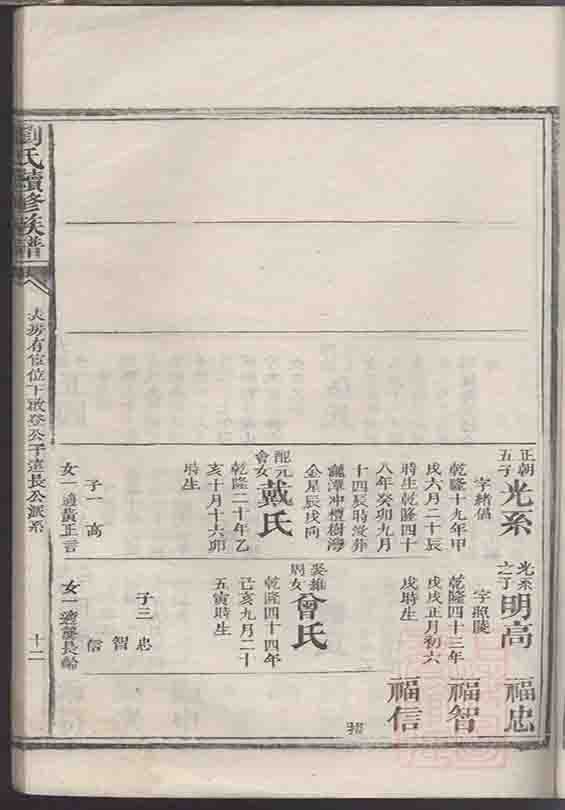 劉氏續修族譜
長房有位下啟登公子達長公派系
十二
正朝
五子
光系
字緒倡
乾隆十九年甲
戌六月二十辰
時生乾隆四十
八年癸卯九月
十四辰時歿葬
龍潭冲檀樹灣
金星辰戌向
配元
會女
戴氏
乾隆二十年乙
亥十月十六卯
時生
子一 高
女一適黃正言
光系
之子
明高
字照陵
乾隆四十三年
戊戌正月初六
戌時生
娶維
周女
曾氏
乾隆四十四年
己亥九月二十
五寅時生
子三 忠
智
信
女一適龔長齡
福忠
福智
福信